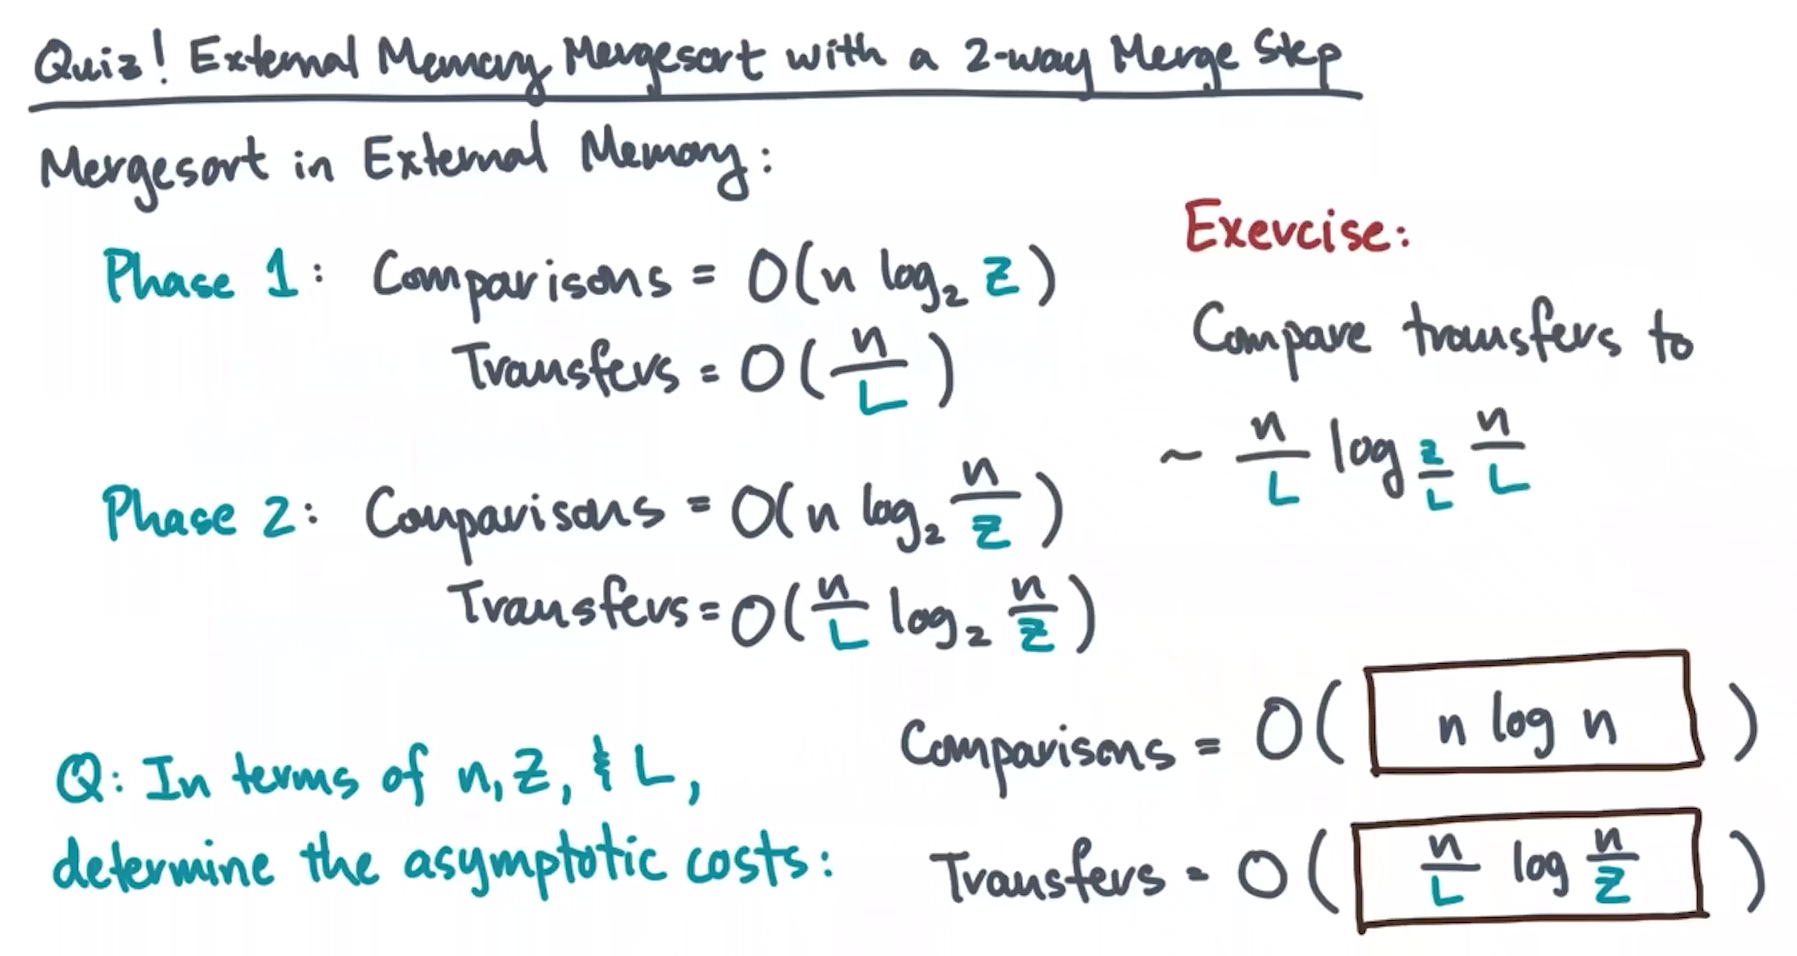 Quiz! External Memory Mergesort with a 2-way Merge Step
Mergesort in External Memory:
Phase 1: Comparisons = O(n log₂ Z)
Transfers = O(n/L)
Phase 2: Comparisons = O(n log₂ n/Z)
Transfers = O(n/L log₂ n/Z)
Exercise:
Compare transfers to
~ n/L log_{Z/L} n/L
Q: In terms of n, Z, & L,
determine the asymptotic costs:
Comparisons = O( n log n )
Transfers = O( n/L log n/Z )